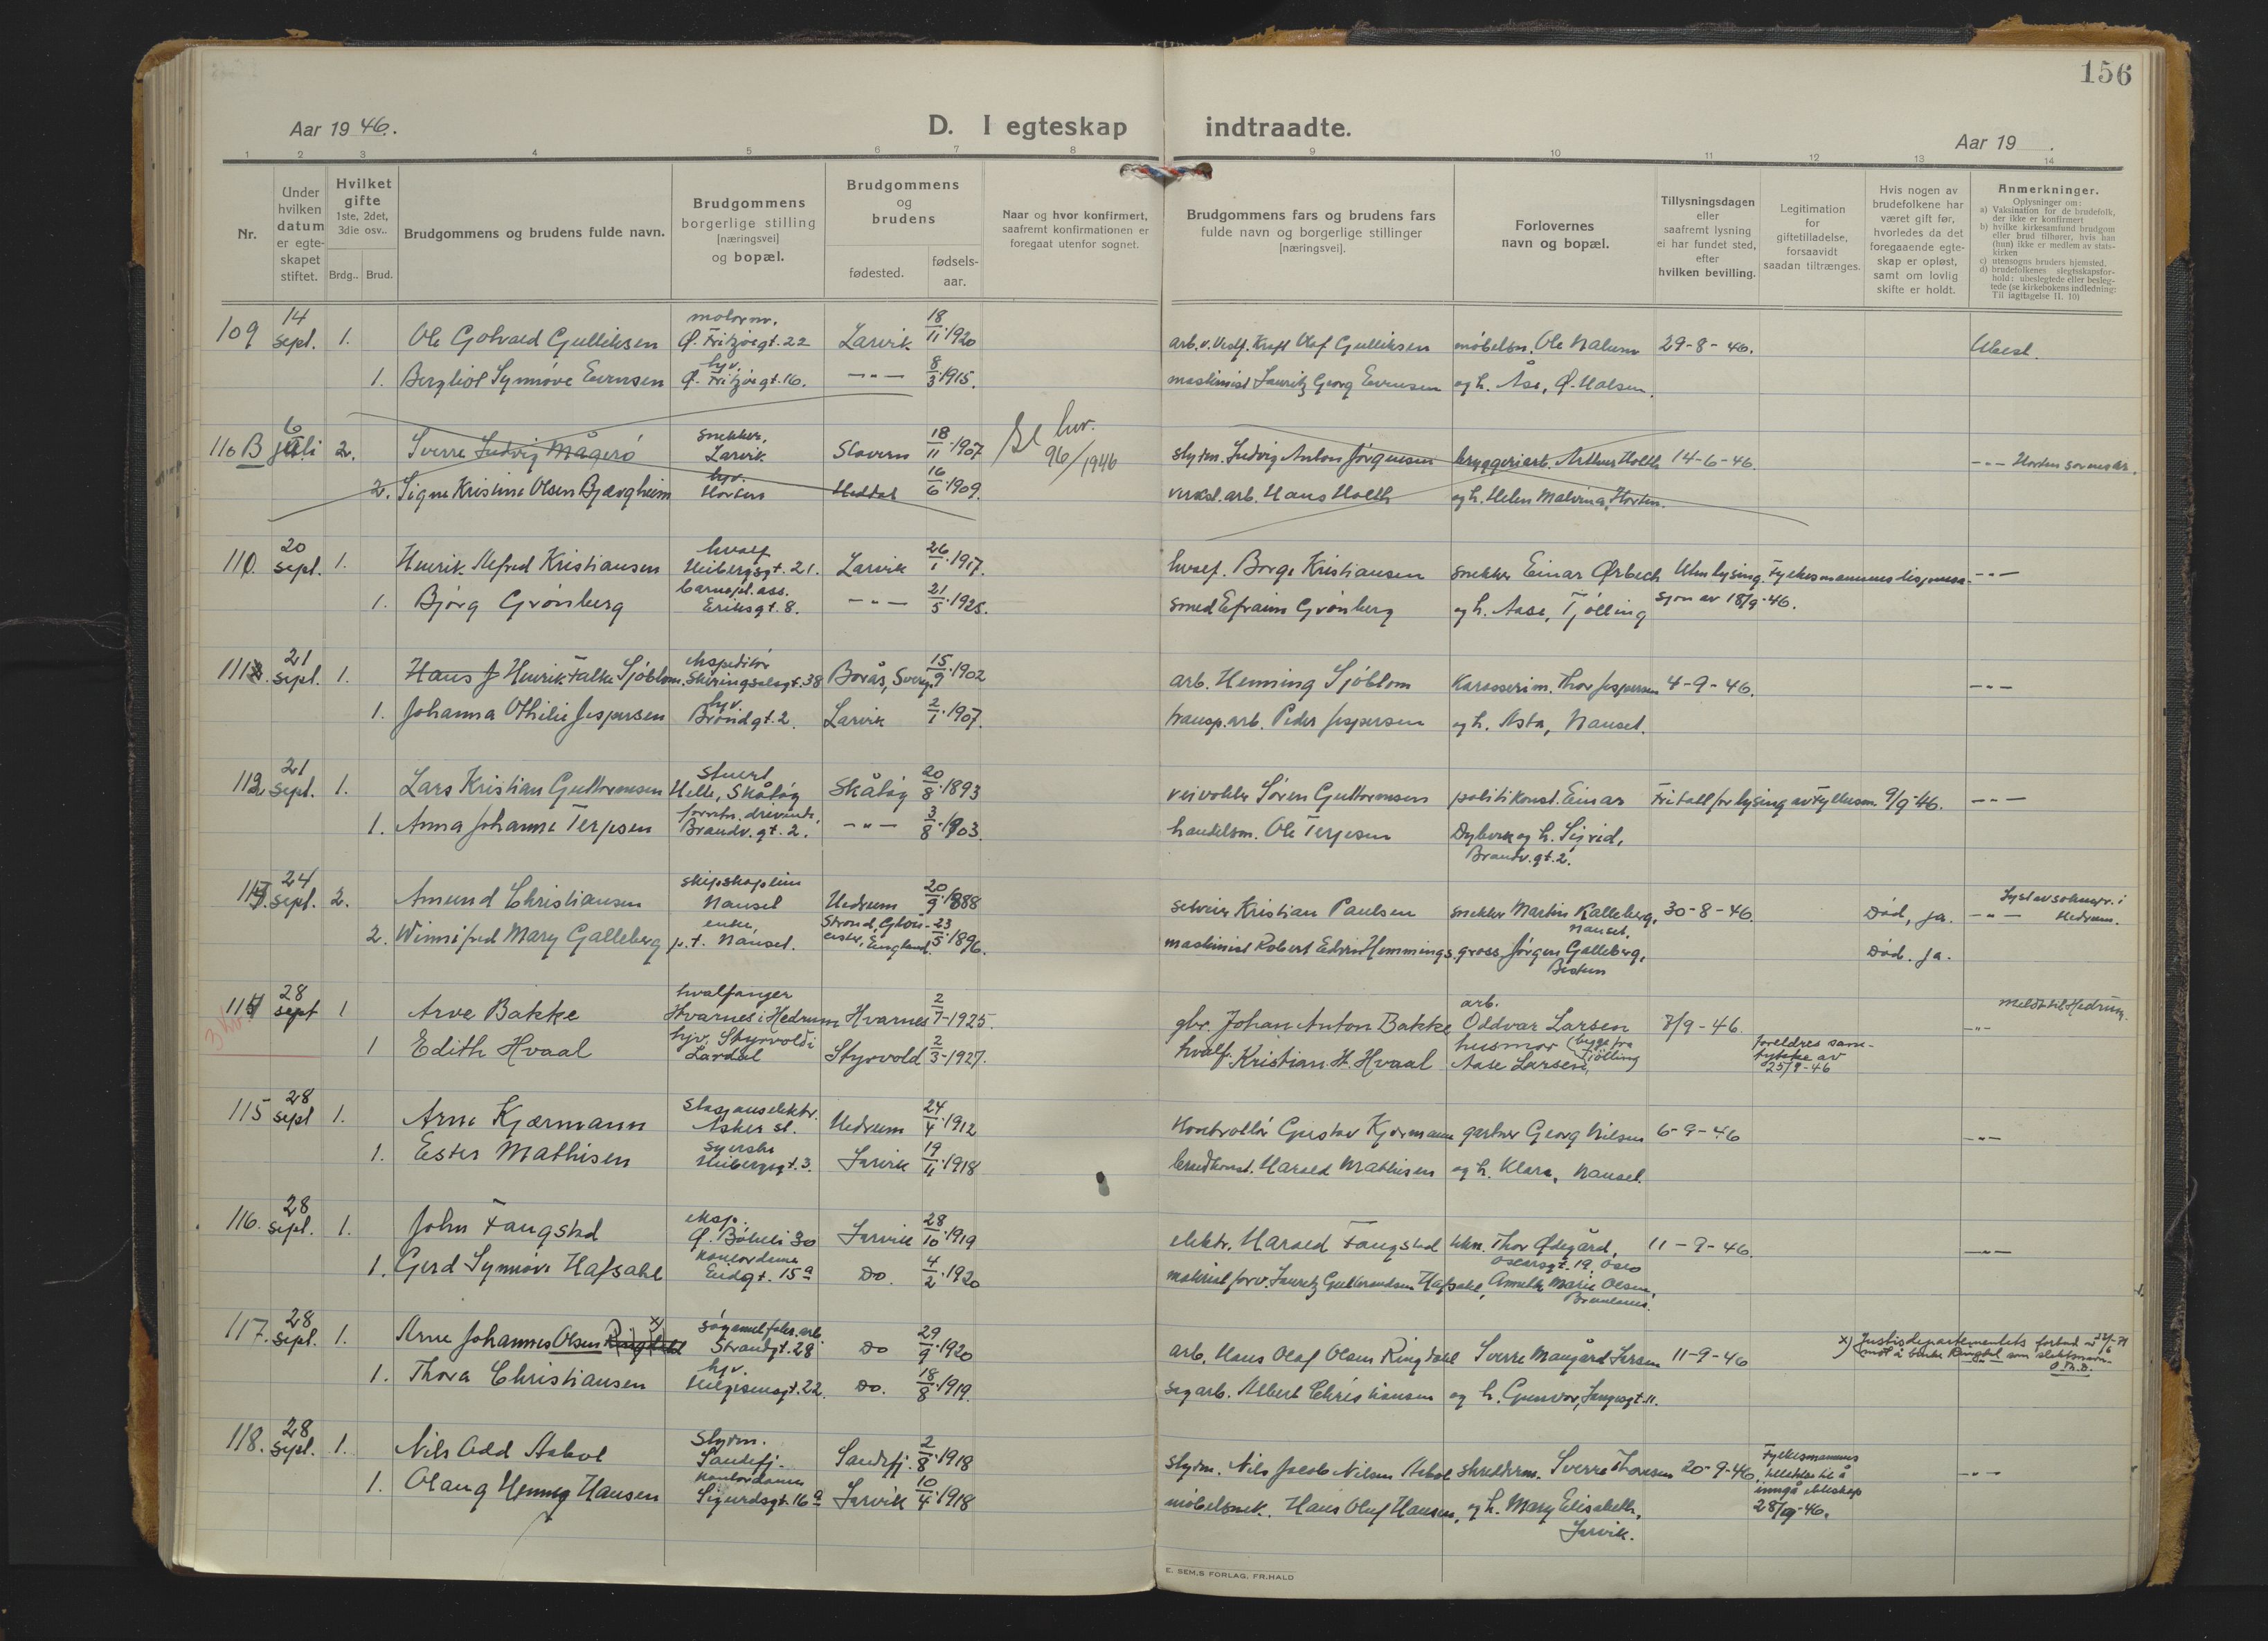 156
Aar 19 46.
D. I egteskap indtraadte.
Aar 19 .
1 2 3 4 5 6 7 8 9 10 11 12 13 14
Nr.
Under hvilken datum er egteskapet stiftet.
Hvilket gifte 1ste, 2det, 3die osv..
Brdg.. Brud.
Brudgommens og brudens fulde navn.
Brudgommens borgerlige stilling [næringsvei] og bopæl.
Brudgommens og brudens
fødested.
fødsels-aar.
Naar og hvor konfirmert, saafremt konfirmationen er foregaat utenfor sognet.
Brudgommens fars og brudens fars fulde navn og borgerlige stillinger [næringsvei].
Forlovernes navn og bopæl.
Tillysningsdagen eller saafremt lysning ei har fundet sted, efter hvilken bevilling.
Legitimation for giftetilladelse, forsaavidt saadan tiltrænges.
Hvis nogen av brudefolkene har været gift før, hvorledes da det foregaaende egteskap er opløst, samt om lovlig skifte er holdt.
Anmerkninger.
Oplysninger om:
a) Vaksination for de brudefolk, der ikke er konfirmert
b) hvilke kirkesamfund brudgom eller brud tilhører, hvis han (hun) ikke er medlem av statskirken
c) utensogns bruders hjemsted.
d) brudefolkenes slegtsskapsforhold: ubeslegtede eller beslegtede (se kirkebokens indledning: Til iagttagelse II. 10)
109 14 sept. 1. Ole Gotvald Gulliksen Ø. Fritzøegt. 22 Larvik 18/11 1920 Olaf Gulliksen møbelsn. Ole Nalum 29-8-46. Ubesl.
1. Bergliot Synnøve Evensen hjv. Ø. Fritzøegt. 16. -"- 8/3 1915. maskinist Lauritz Georg Evensen og h. Åse, Ø. Halsen.
110 B 6 juli 2. Sverre Ludvig Mågerø snekker, Larvik Stavern 18/11 1907 96/1946 styrm. Ludvig Anton Jørgensen bryggeriarb. Arthur Holth 14-6-46. -"-
2. Signe Kristine Olsen Bjærgheim hjv. Horten Heddal 16/6 1909. verkst. arb. Hans Holth og h. Helen Malvina, Horten.
110. 20 sept. 1. Henrik Alfred Kristiansen hvalf Heibergsgt. 21. Larvik 26/1 1917. hvalf. Borge Kristiansen snekker Einar Ørbech Uten lysing. Fylkesmannens dispensa- -"-
1. Bjørg Grønberg barnepl. ass. Eriksgt. 8. -"- 21/5 1925. smed Efraim Grønberg og h. Aase, Tjølling sjon av 18/9-46.
111. 21 sept. 1. Hans J Henrik Falke Sjöblom ekspeditør Skiringsalsgt. 38 Borås, Sverige 15/9 1902 arb. Henning Sjöblom Karosserim. Thor Jespersen 4-9-46. -"-
1. Johanna Othilie Jespersen hjv. Brøndgt. 2. Larvik 2/1 1907. transp. arb. Peder Jespersen og h. Asta, Nanset.
112. 21 sept. 1. Lars Kristian Guttormsen stuert Helle, Skåtøy Skåtøy 20/8 1893 veivokter Søren Guttormsen politikonst. Einar Fritatt for lysing av Fylkesm. 9/9-46. -"-
1. Anna Johanne Terjesen Brandv. gt. 2. -"- 3/8 1903. handelsm. Ole Terjesen og h. Sigrid, Brandv. gt. 2.
113. 24 sept. 2. Amund Christiansen skipskaptein Nanset Hedrum 20/9 1888 Kristian Paulsen snekker Martin Kalleberg, Nanset. 30-8-46. Død, ja. -"- Hedrum.
2. Winnifred Mary Galleberg enke, p.t. Nanset. England. 23/5 1896. maskinist Robert Edvin Hemmings. gross. Jørgen Galleberg, Bestum Død. Ja.
114 28 sept 1 Arve Bakke hvalfanger Hvarnes i Hedrum Hvarnes 2/7-1925. gbr. Johan Anton Bakke arb. Oddvar Larsen 7/9-46. -"- Meldt til Hedrum.
1 Edith Hvaal hjv. Styrvold i Lardal Styrvold 2/3-1927. hvalf. Kristian H. Hvaal husmor Aase Larsen, (begge fra Tjølling foreldres samtykke av 25/9-46
115 28 sept 1. Arne Kjærmann stasjonselektr. Asker st. Hedrum 24/4 1912 Kontrollør Gustav Kjærmann gartner Georg Nilsen 6-9-46 -"-
1. Ester Mathisen syerske Heibergsgt. 3. Larvik 19/4 1918 Harald Mathisen og h. Klara, Nanset.
116. 28 sept. 1. John Fangstad eksp. Ø. Bøkeli 30 Larvik 28/10 1919 elektr. Harald Fangstad tekn. Thor Ødegård, Oscarsgt. 19, Oslo 11-9-46. -"-
1. Gerd Synnøve Hafsahl kontordame Eidgt. 15a Do. 4/2 1920 materialforv. Lauritz Gulbrandsen Hafsahl, Marie Olsen, Brunlanes.
117. 28 sept. 1. Arne Johannes Olsen Ringdahl x) Strandgt. 28 Do 29/9 1920 arb. Hans Olaf Olsen Ringdahl Sverre Maugård Larsen 11-9-46 x) Justisdepartementets forbud mot å bruke Ringdal som slektsnavn
1. Thora Christiansen hjv. Helgesensgt. 22. Do. 18/8 1919. sagarb. Albert Christiansen og h. Gunvor, Langesgt. 11.
118. 28 sept. 1. Nils Odd Aabol styrm. Sandefj. Sandefj. 2/8 1918 styrm. Nils Jacob Nilsen Aabol skredderm. Sverre Thoresen 20-9-46. Fylkesmannens tillatelse til å inngå ekteskap 28/9-46. -"-
1. Olaug Henny Hansen kontordame Sigurdsgt. 16a Larvik 10/4 1918 møbelsnek. Hans Oluf Hansen, og h. Mary Elisabeth, Larvik.
E. SEM,S FORLAG, FR.HALD